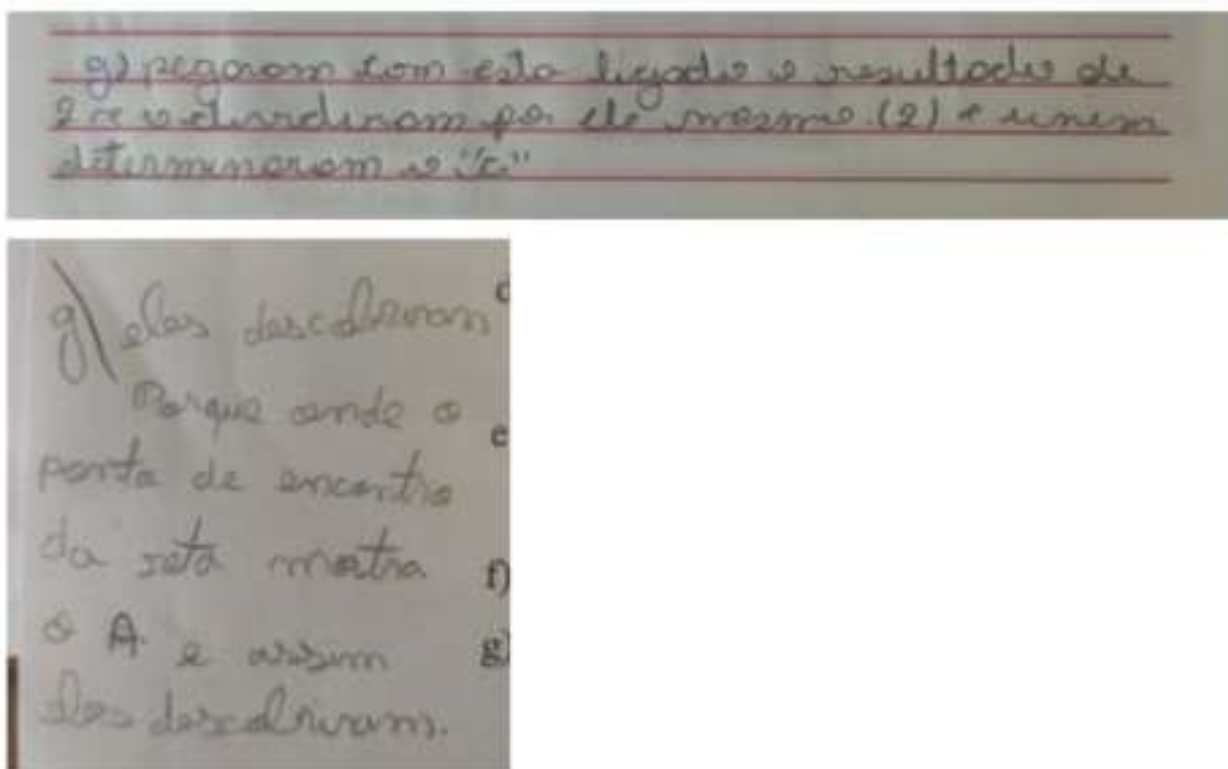 g) pegaram com esta ligado o resultado de
2 e o dividiram por ele mesmo. (2) e
determinaram o "c"
g) eles descobriram
Porque onde o
ponto de encontro
da reta mostra
o A. e assim
eles descobriram.
e
f)
g)